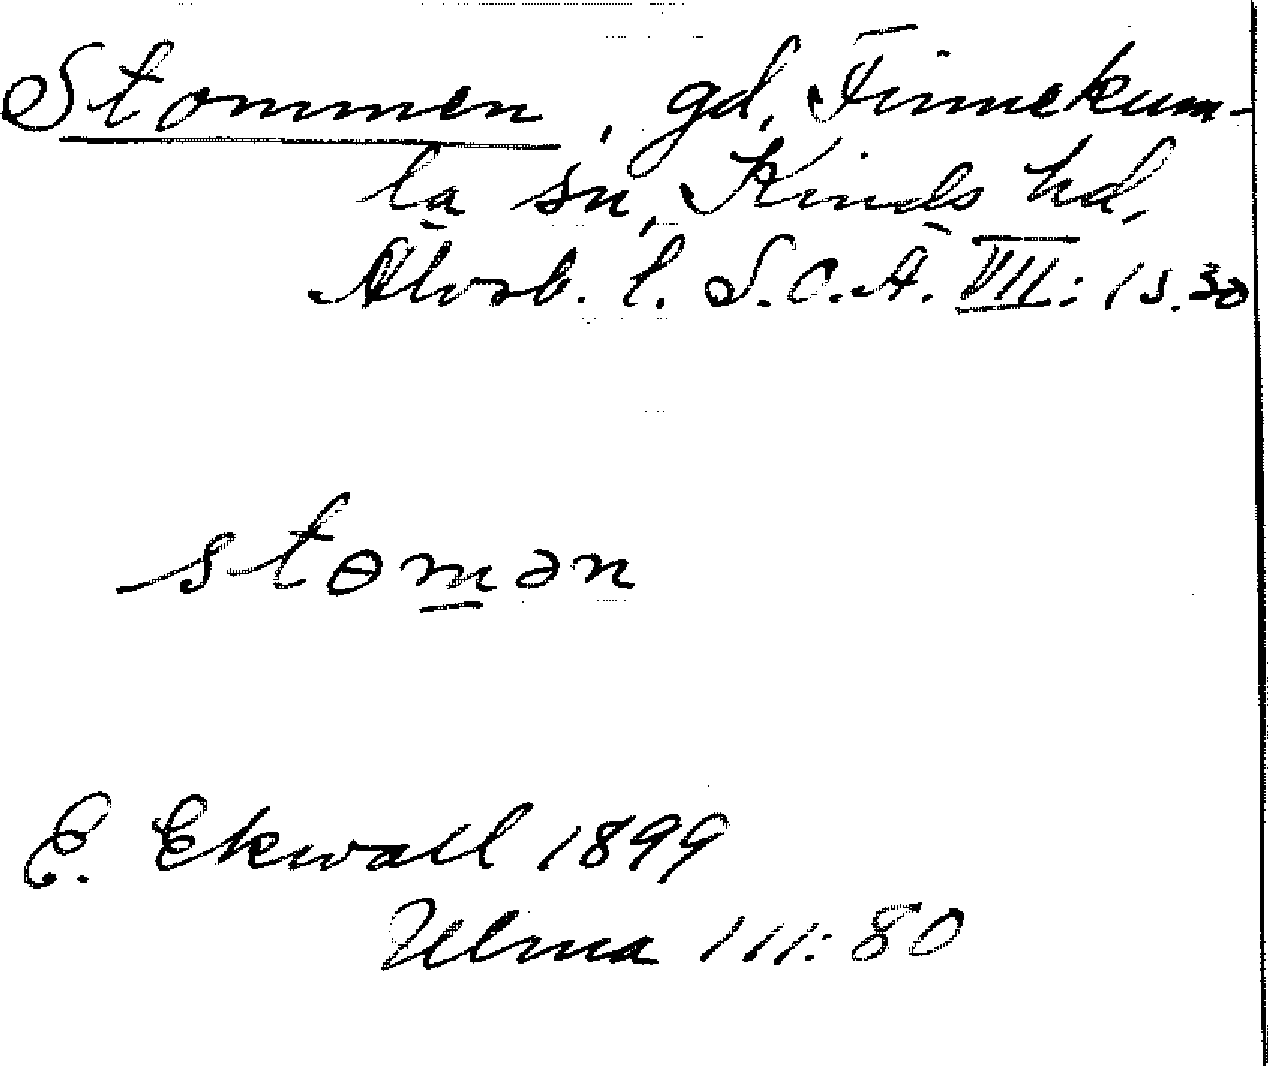 Stommen, gd, Finnekum-
la sn, Kinds hd,
Älvsb. l. S.O.A. VII: 1 s. 30
stɵmən
E. Ekwall 1899
Ulma 111:80